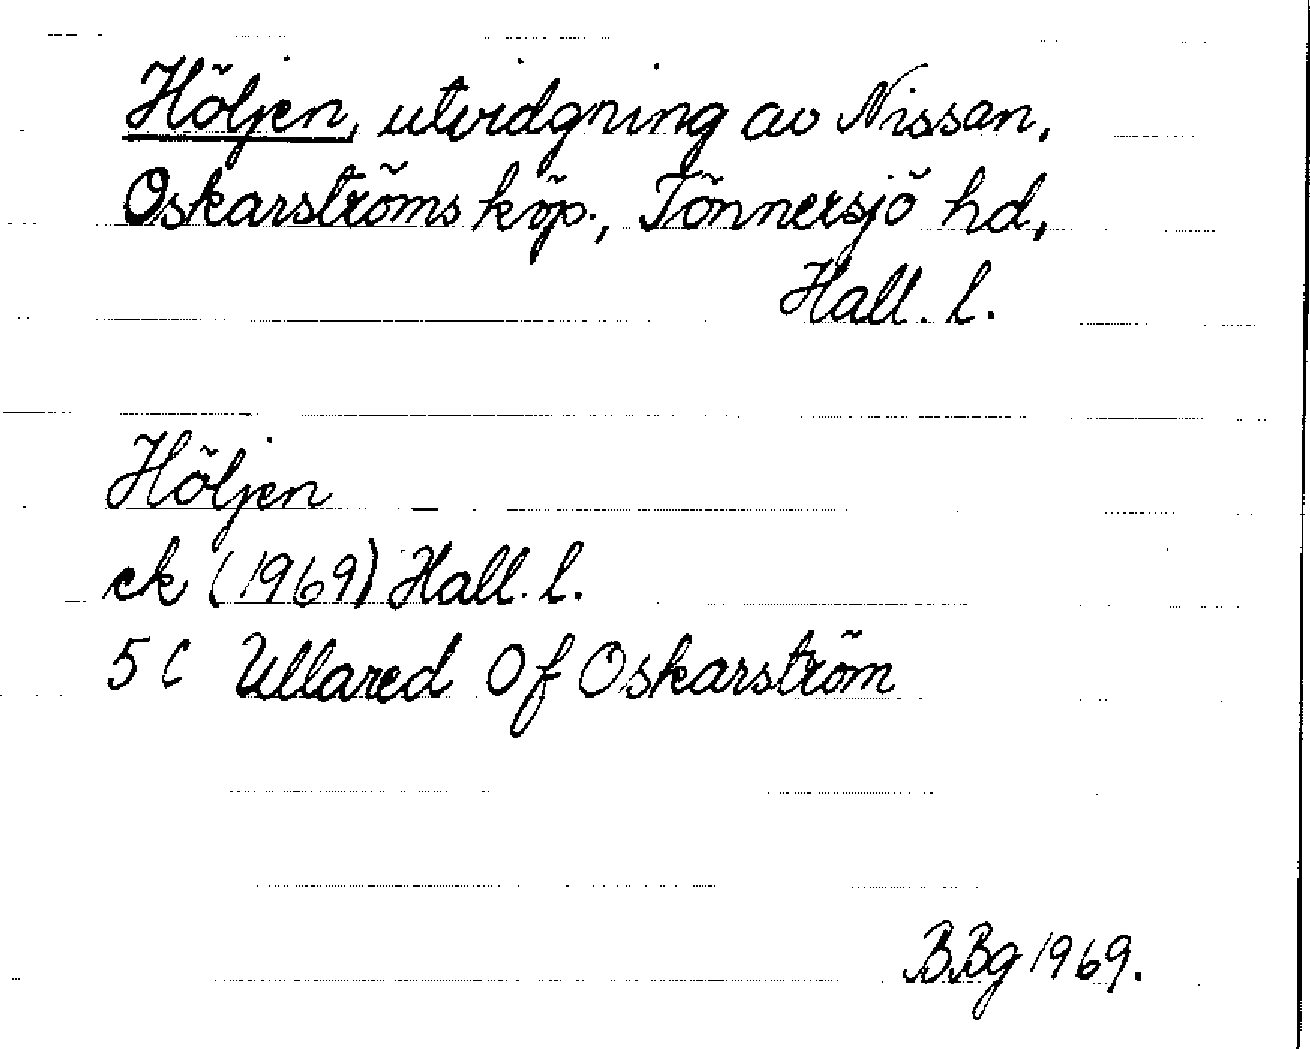 Höljen, utvidgning av Nissan,
Oskarströms köp., Tönnersjö hd,
Hall. l.
Höljen
ek (1969) Hall. l.
5C Ullared Of Oskarström
BBg 1969.